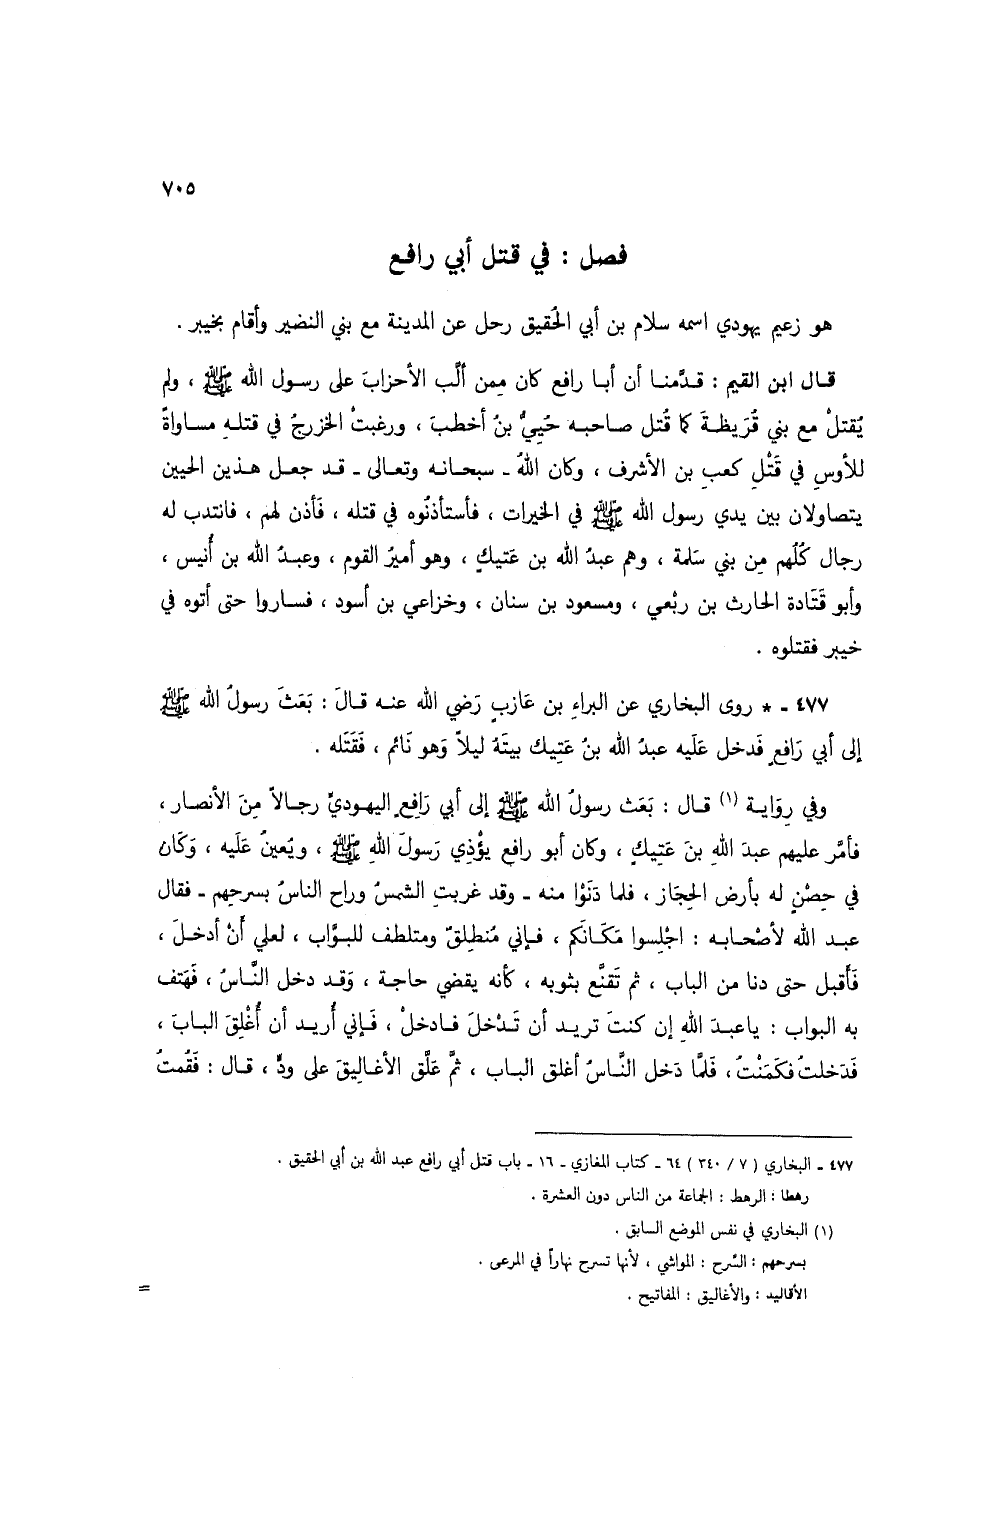 ٧٠٥
فصل : في قتل أبي رافع
هو زعيم يهودي اسمه سلام بن أبي الحُقيق رحل عن المدينة مع بني النضير وأقام بخيبر .
قال ابن القيم : قدَّمنا أن أبا رافع كان مِمن ألَّب الأحزابَ على رسول الله ﷺ ، ولم
يُقتلْ مع بني قُرَيظةَ كما قُتل صاحبه حُيَيُّ بنُ أخطبَ ، ورغبتْ الخزرجُ في قتلهِ مساواةً
للأوسِ في قَتْلِ كعبِ بن الأشرف ، وكان اللهُ ـ سبحانه وتعالى ـ قد جعل هذين الحيين
يتصاولان بين يدي رسول الله ﷺ في الخيرات ، فأستأذنُوه في قتله ، فَأذن لهم ، فانتدب له
رجال كُلُهم مِن بني سَلمة ، وهم عبدُ الله بن عَتيكٍ ، وهو أميرُ القوم ، وعبدُ الله بن أُنيس ،
وأبو قَتَادة الحارث بن ربْعي ، ومسعود بن سنان ، وخزاعي بن أسود ، فساروا حتى أتوه في
خيبر فقتلوه .
٤٧٧ ـ * روى البخاري عن البراءِ بن عَازبٍ رَضي الله عنه قالَ : بَعَثَ رسولُ الله ﷺ
إلى أبي رَافعٍ فَدخل عَلَيه عبدُ الله بنُ عَتِيك بيتَهُ ليلاً وَهو نَائم ، فَقَتَله .
وفي رِوَاية (١) قال : بَعَث رسولُ الله ﷺ إلى أبي رَافِعٍ اليهوديِّ رجالاً مِنَ الأنصار ،
فأمَّر عليهم عبدَ اللهِ بنَ عَتِيكٍ ، وكان أبو رافع يؤْذِي رَسولَ اللهِ ﷺ ، ويُعينُ عَلَيه ، وَكَان
في حِصْنٍ له بأرض الحِجَاز ، فلما دَنَوْا منه ـ وقد غربتِ الشمسُ وراح الناسُ بسرحِهم ـ فقال
عبد الله لأصْحابه : اجْلِسوا مَكَانَكم ، فإني مُنطلِقٌ ومتلطف للبوَّاب ، لعلي أَنْ أدخلَ ،
فَأقبل حتى دنا من الباب ، ثم تَقنَّع بثوبه ، كأنه يقضي حاجة ، وَقد دخل النَّاسُ ، فَهَتف
به البواب : ياعبدَ اللهِ إن كنتَ تريد أن تَدْخلَ فادخلْ ، فَإني أُريد أن أُغْلِقَ البابَ ،
فَدَخلتُ فكَمَنْتُ ، فَلمَّا دَخل النَّاسُ أغلق الباب ، ثمَّ عَلَّق الأغالِيقَ على ودٍّ ، قال : فَقُمتُ
٤٧٧ ـ البخاري ( ٧ / ٣٤٠ ) ٦٤ ـ كتاب المغازي ـ ١٦ ـ باب قتل أبي رافع عبد الله بن أبي الحقيق .
رهطا : الرهط : الجماعة من الناس دون العشرة .
(١) البخاري في نفس الموضع السابق .
بسرحهم : السَّرح : المواشي ، لأنها تسرح نهاراً في المرعى .
الأقاليد : والأغاليق : المفاتيح .
=